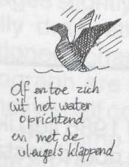 Af en toe zich
uit het water
oprichtend
en met de
vleugels klappend